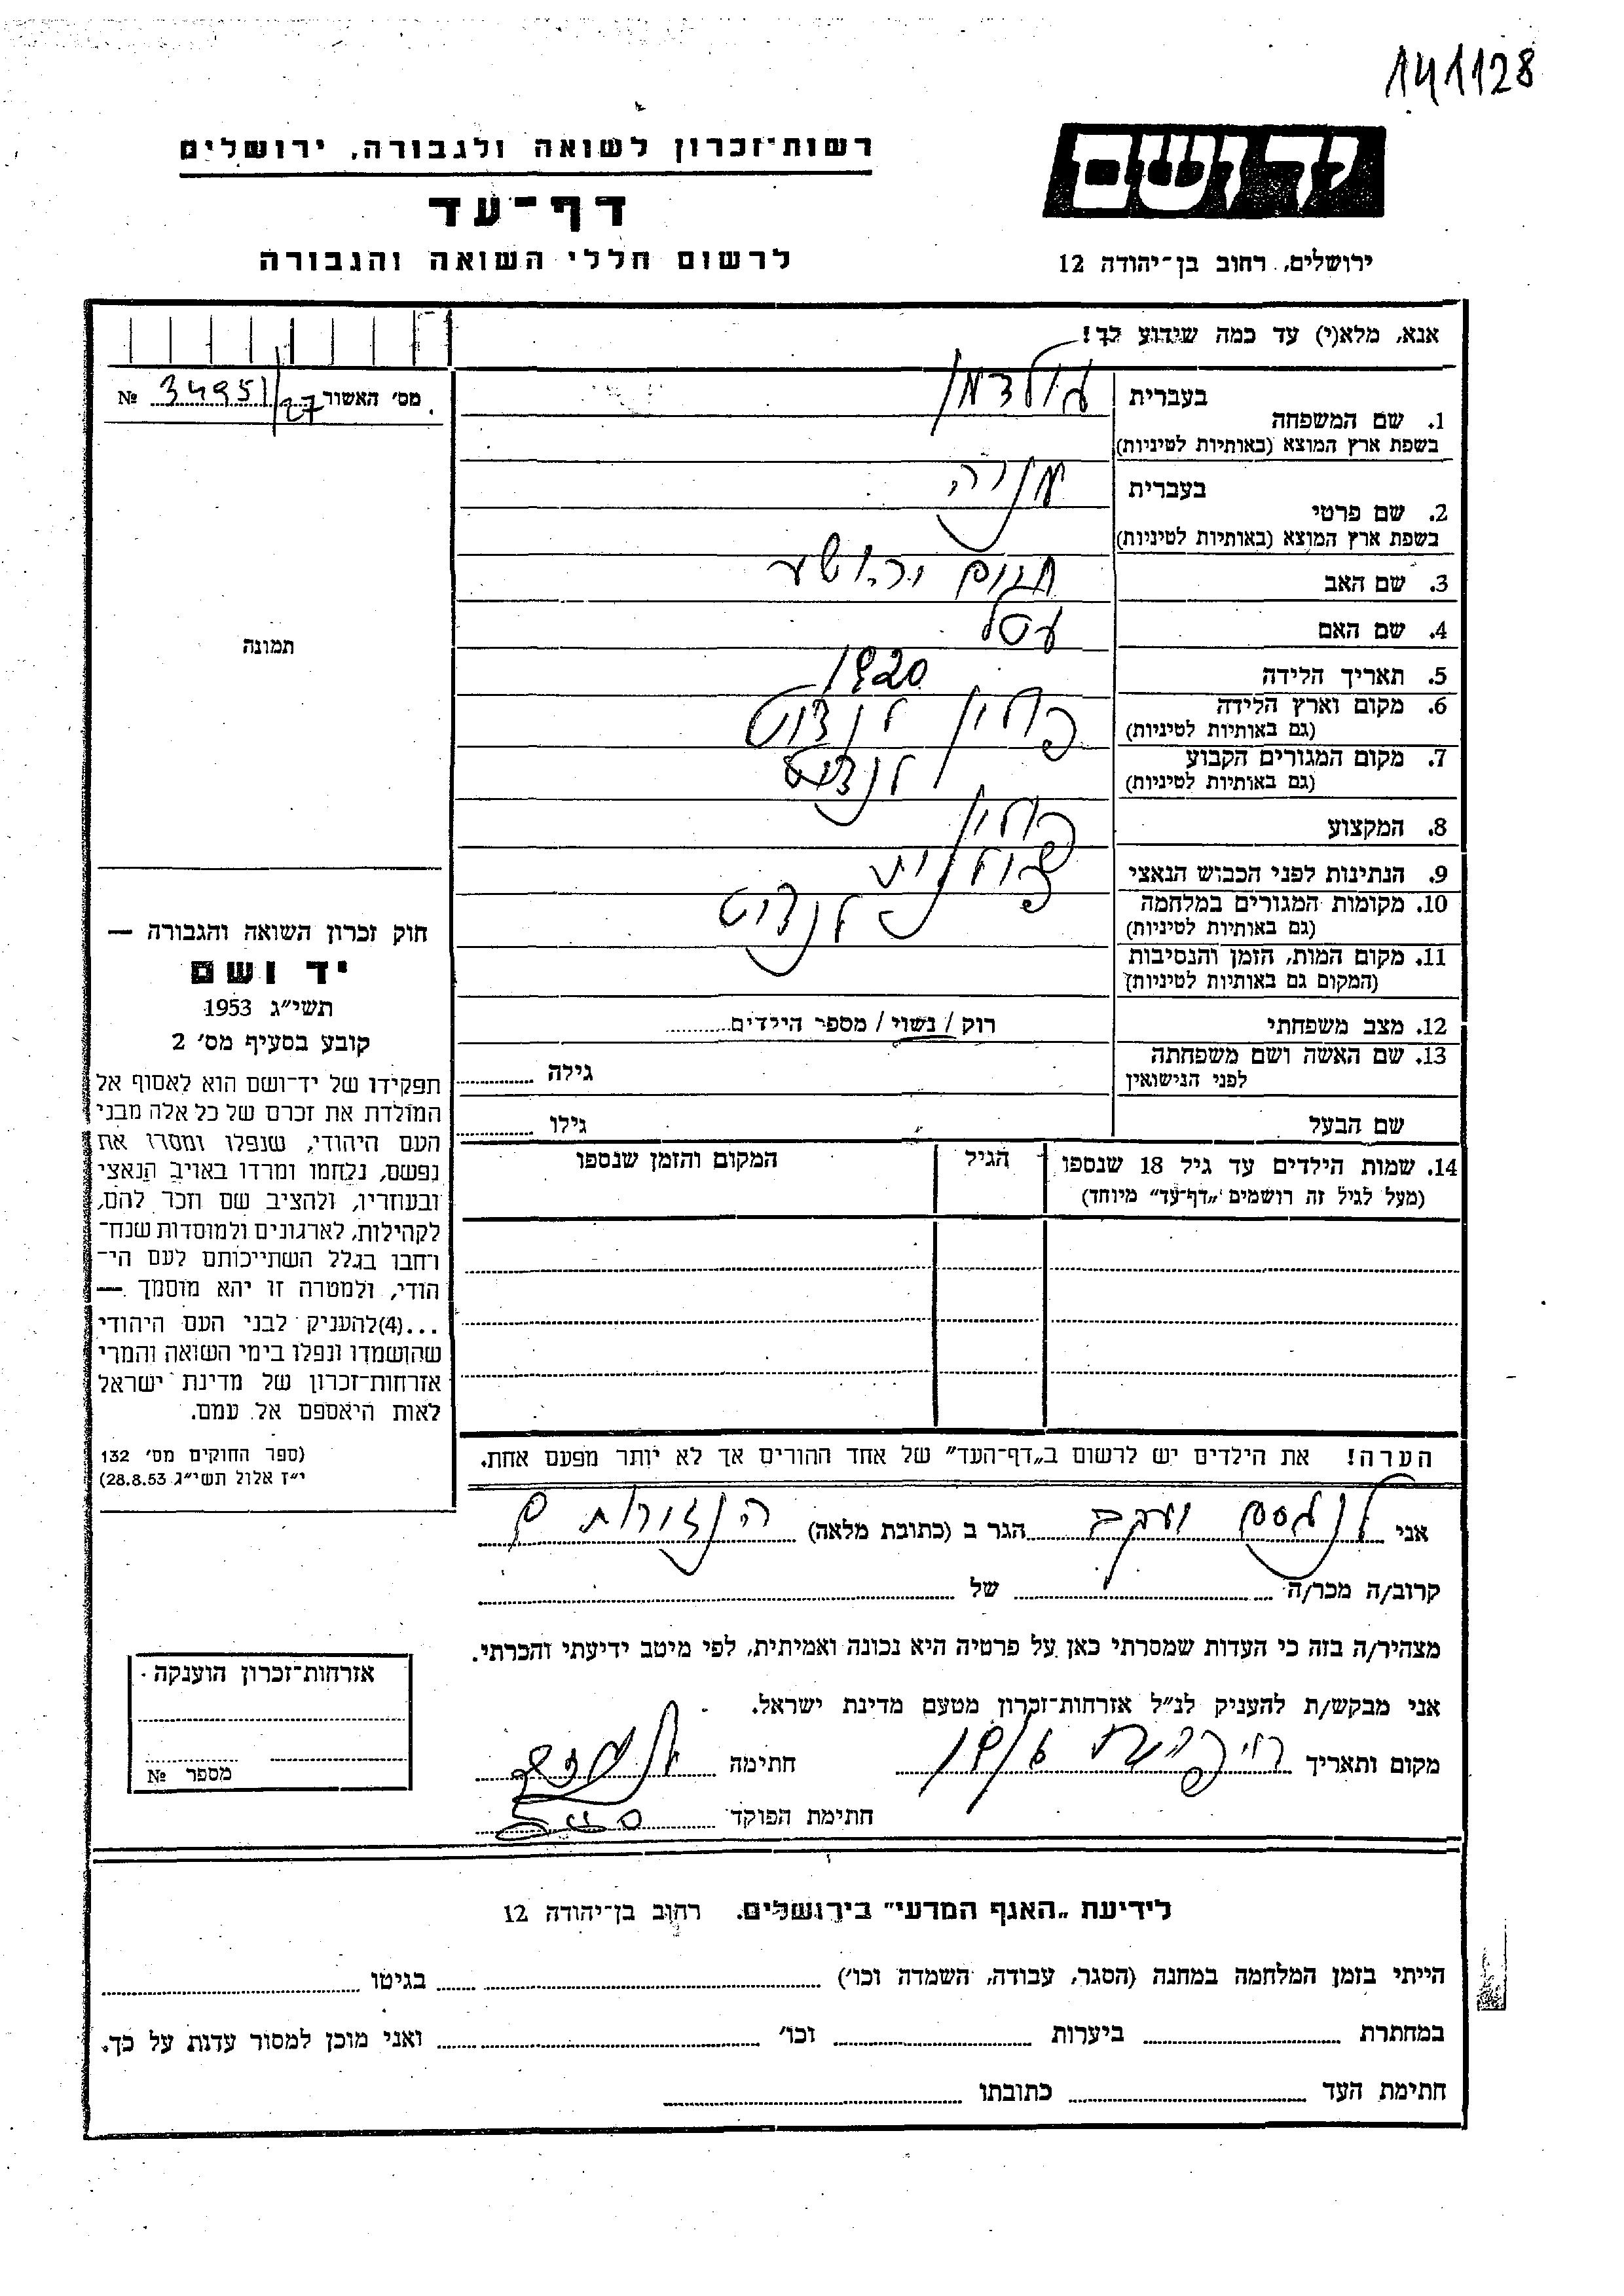 141128
יד ושם
רשות־זכרון לשואה ולגבורה, ירושלים
דף־עד
לרשום חללי השואה והגבורה
ירושלים, רחוב בן־יהודה 12
אנא, מלא(י) עד כמה שידוע לך!
מס׳ האשור 34951/27 №
1. שם המשפחה בעברית גולדמן
בשפת ארץ המוצא (באותיות לטיניות)
2. שם פרטי בעברית
בשפת ארץ המוצא (באותיות לטיניות)
3. שם האב
4. שם האם עטל
5. תאריך הלידה 1920
6. מקום וארץ הלידה פולין
(גם באותיות לטיניות)
7. מקום המגורים הקבוע
(גם באותיות לטיניות)
8. המקצוע
פולין
9. הנתינות לפני הכבוש הנאצי פולנית
10. מקומות המגורים במלחמה
(גם באותיות לטיניות)
11. מקום המות, הזמן והנסיבות
(המקום גם באותיות לטיניות)
12. מצב משפחתי רוק / נשוי / מספר הילדים
13. שם האשה ושם משפחתה
לפני הנישואין גילה
שם הבעל גילו
14. שמות הילדים עד גיל 18 שנספו הגיל המקום והזמן שנספו
(מעל לגיל זה רושמים „דף־עד״ מיוחד)
הערה! את הילדים יש לרשום ב„דף־העד״ של אחד ההורים אך לא יותר מפעם אחת.
תמונה
חוק זכרון השואה והגבורה —
יד ושם
תשי״ג 1953
קובע בסעיף מס׳ 2
תפקידו של יד־ושם הוא לאסוף אל
המולדת את זכרם של כל אלה מבני
העם היהודי, שנפלו ומסרו את
נפשם, נלחמו ומרדו באויב הנאצי
ובעוזריו, ולהציב שם וזכר להם,
לקהילות, לארגונים ולמוסדות שנח־
רחבו בגלל השתייכותם לעם הי־
הודי, ולמטרה זו יהא מוסמך —
...(4)להעניק לבני העם היהודי
שהושמדו ונפלו בימי השואה והמרי
אזרחות־זכרון של מדינת ישראל
לאות היאספם אל עמם.
(ספר החוקים מס׳ 132
י״ז אלול תשי״ג 28.8.53)
אני יעקב הגר ב (כתובת מלאה)
קרוב/ה מכר/ה של
מצהיר/ה בזה כי העדות שמסרתי כאן על פרטיה היא נכונה ואמיתית, לפי מיטב ידיעתי והכרתי.
אני מבקש/ת להעניק לנ״ל אזרחות־זכרון מטעם מדינת ישראל.
מקום ותאריך חתימה
חתימת הפוקד
אזרחות־זכרון הוענקה
מספר №
לידיעת „האגף המדעי״ בירושלים. רחוב בן־יהודה 12
הייתי בזמן המלחמה במחנה (הסגר, עבודה, השמדה וכו׳) בגיטו
במחתרת ביערות וכו׳ ואני מוכן למסור עדות על כך.
חתימת העד כתובתו